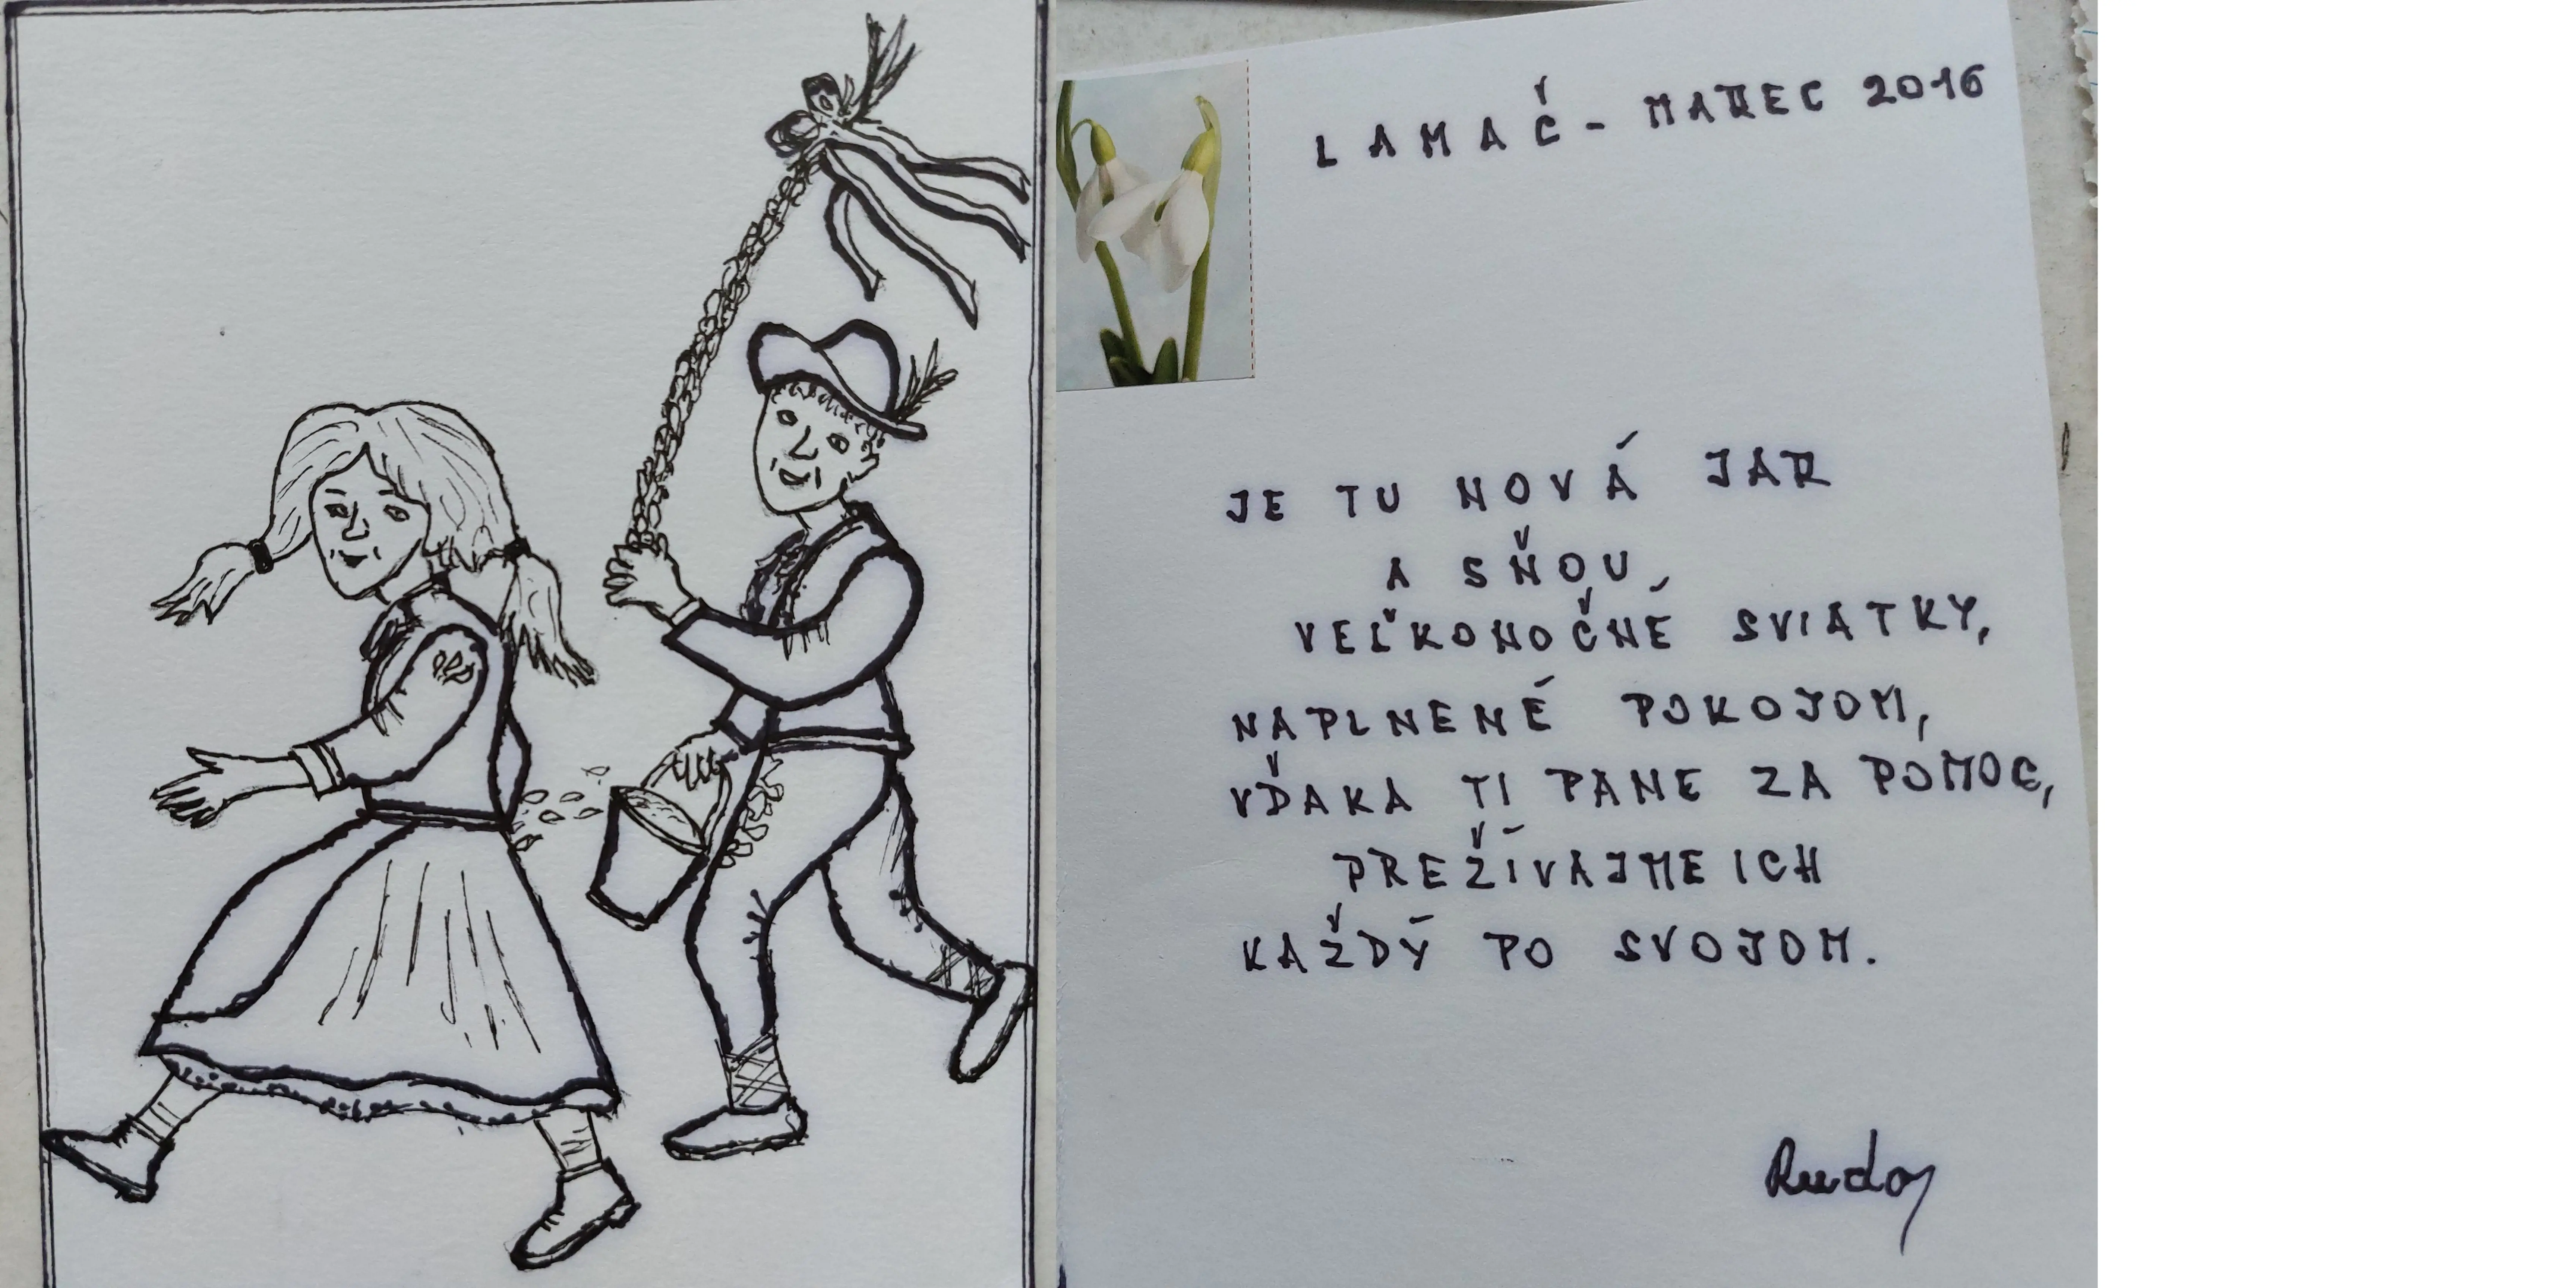 LAMAČ - MAREC 2016
JE TU NOVÁ JAR
A SŇOU
VEĽKONOČNÉ SVIATKY,
NAPLNENÉ POKOJOM,
VĎAKA TI PANE ZA POMOC,
PREŽÍVAJME ICH
KAŽDÝ PO SVOJOM.
Rudo